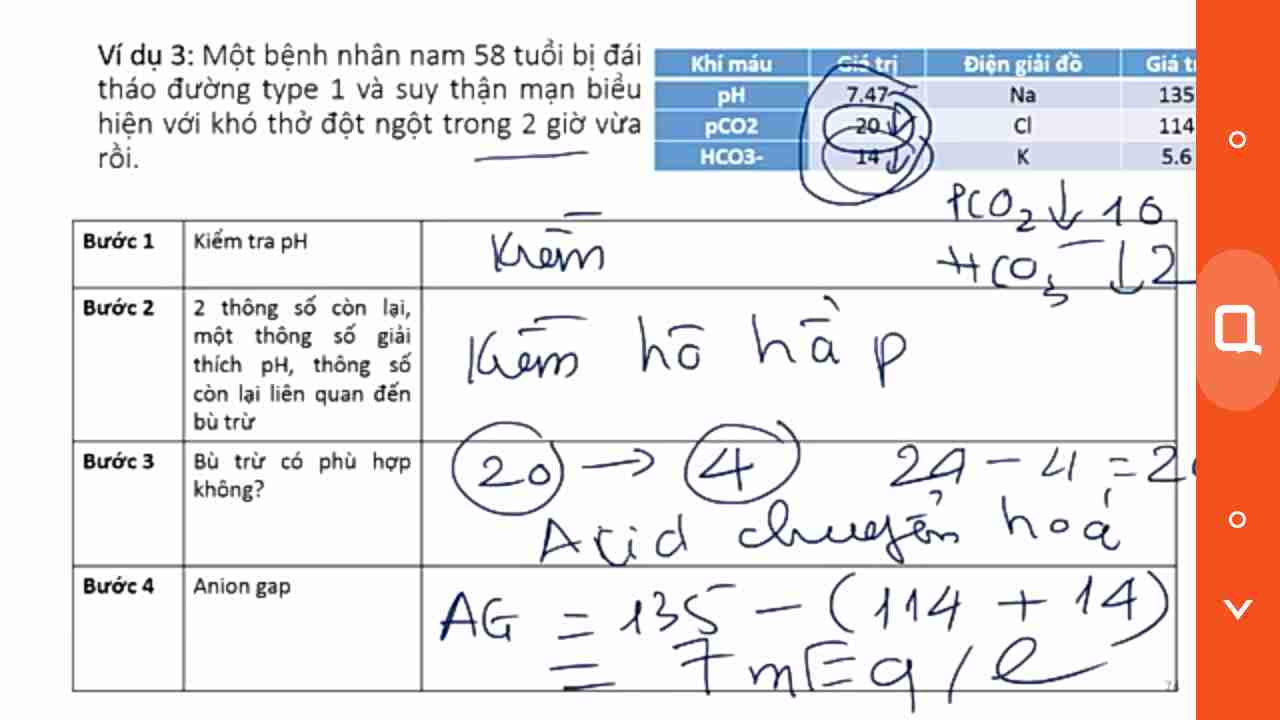 Ví dụ 3: Một bệnh nhân nam 58 tuổi bị đái
tháo đường type 1 và suy thận mạn biểu
hiện với khó thở đột ngột trong 2 giờ vừa
rồi.
Khí máu Giá trị Điện giải đồ Giá
pH 7.47 Na 135
pCO2 20 Cl 114
HCO3- 14 K 5.6
PCO2 ↓ 10
HCO3 ↓ 2
Bước 1 Kiểm tra pH Kiềm
Bước 2 2 thông số còn lại,
một thông số giải
thích pH, thông số
còn lại liên quan đến
bù trừ
Kiềm hô hấp
Bước 3 Bù trừ có phù hợp
không?
20 → 4 24 - 4 = 20
Acid chuyển hoá
Bước 4 Anion gap
AG = 135 - (114 + 14)
= 7 mEq/l